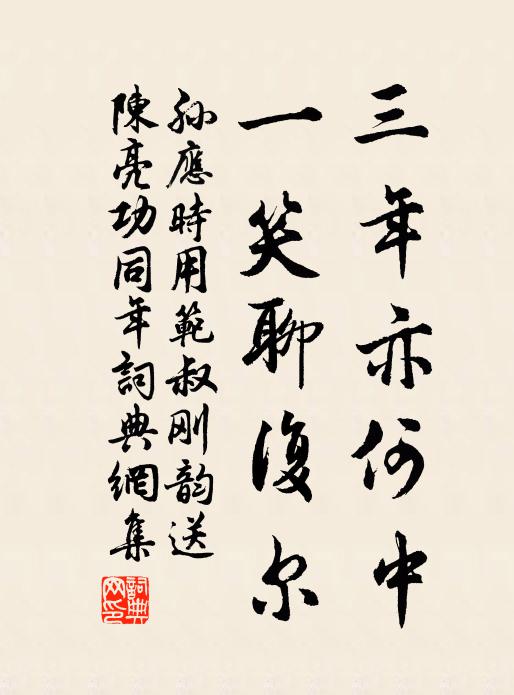 三年亦何中
一笑聊復尔
孫應時用範叔刚韵送
陳亮功同年詞典網集
詞典网印